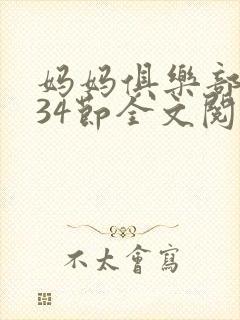 妈妈俱樂部
34節全文閱
不太會寫